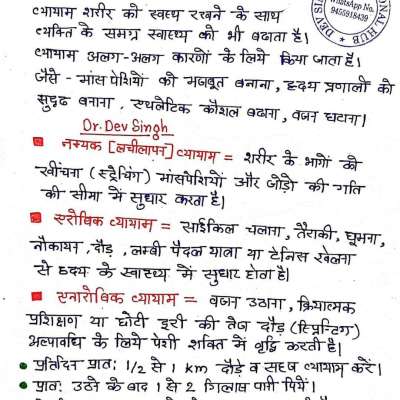 व्यायाम शरीर को स्वस्थ रखने के साथ
व्यक्ति के समग्र स्वास्थ्य को भी बढाता है।
व्यायाम अलग-अलग कारणों के लिये किया जाता है।
जैसे - मांसपेशियों को मजबूत बनाना, हृदय प्रणाली को
सुदृढ बनाना, एथलेटिक कौशल बढाना, वजन घटाना।
Dr. Dev Singh
नम्यक [लचीलापन] व्यायाम = शरीर के भागों को
खींचना (स्ट्रेचिंग) मांसपेशियों और जोड़ो की गति
की सीमा में सुधार करता है।
एरोबिक व्यायाम = साईकिल चलाना, तैराकी, घूमना,
नौकायन, दौड़, लम्बी पैदल यात्रा या टेनिस खेलना
से हृदय के स्वास्थ्य में सुधार होता है।
एनारोबिक व्यायाम = वजन उठाना, क्रियात्मक
प्रशिक्षण या छोटी दूरी की तेज दौड़ (स्प्रिन्टिंग)
अल्पावधि के लिये पेशी शक्ति में वृद्धि करती है।
प्रतिदिन प्रातः 1/2 से 1 km दौड़े व सहज व्यायाम करें।
प्रातः उठने के बाद 1 से 2 गिलास पानी पियें।
WhatsApp No.
9455918439
DEV SIN
ONAL HUB